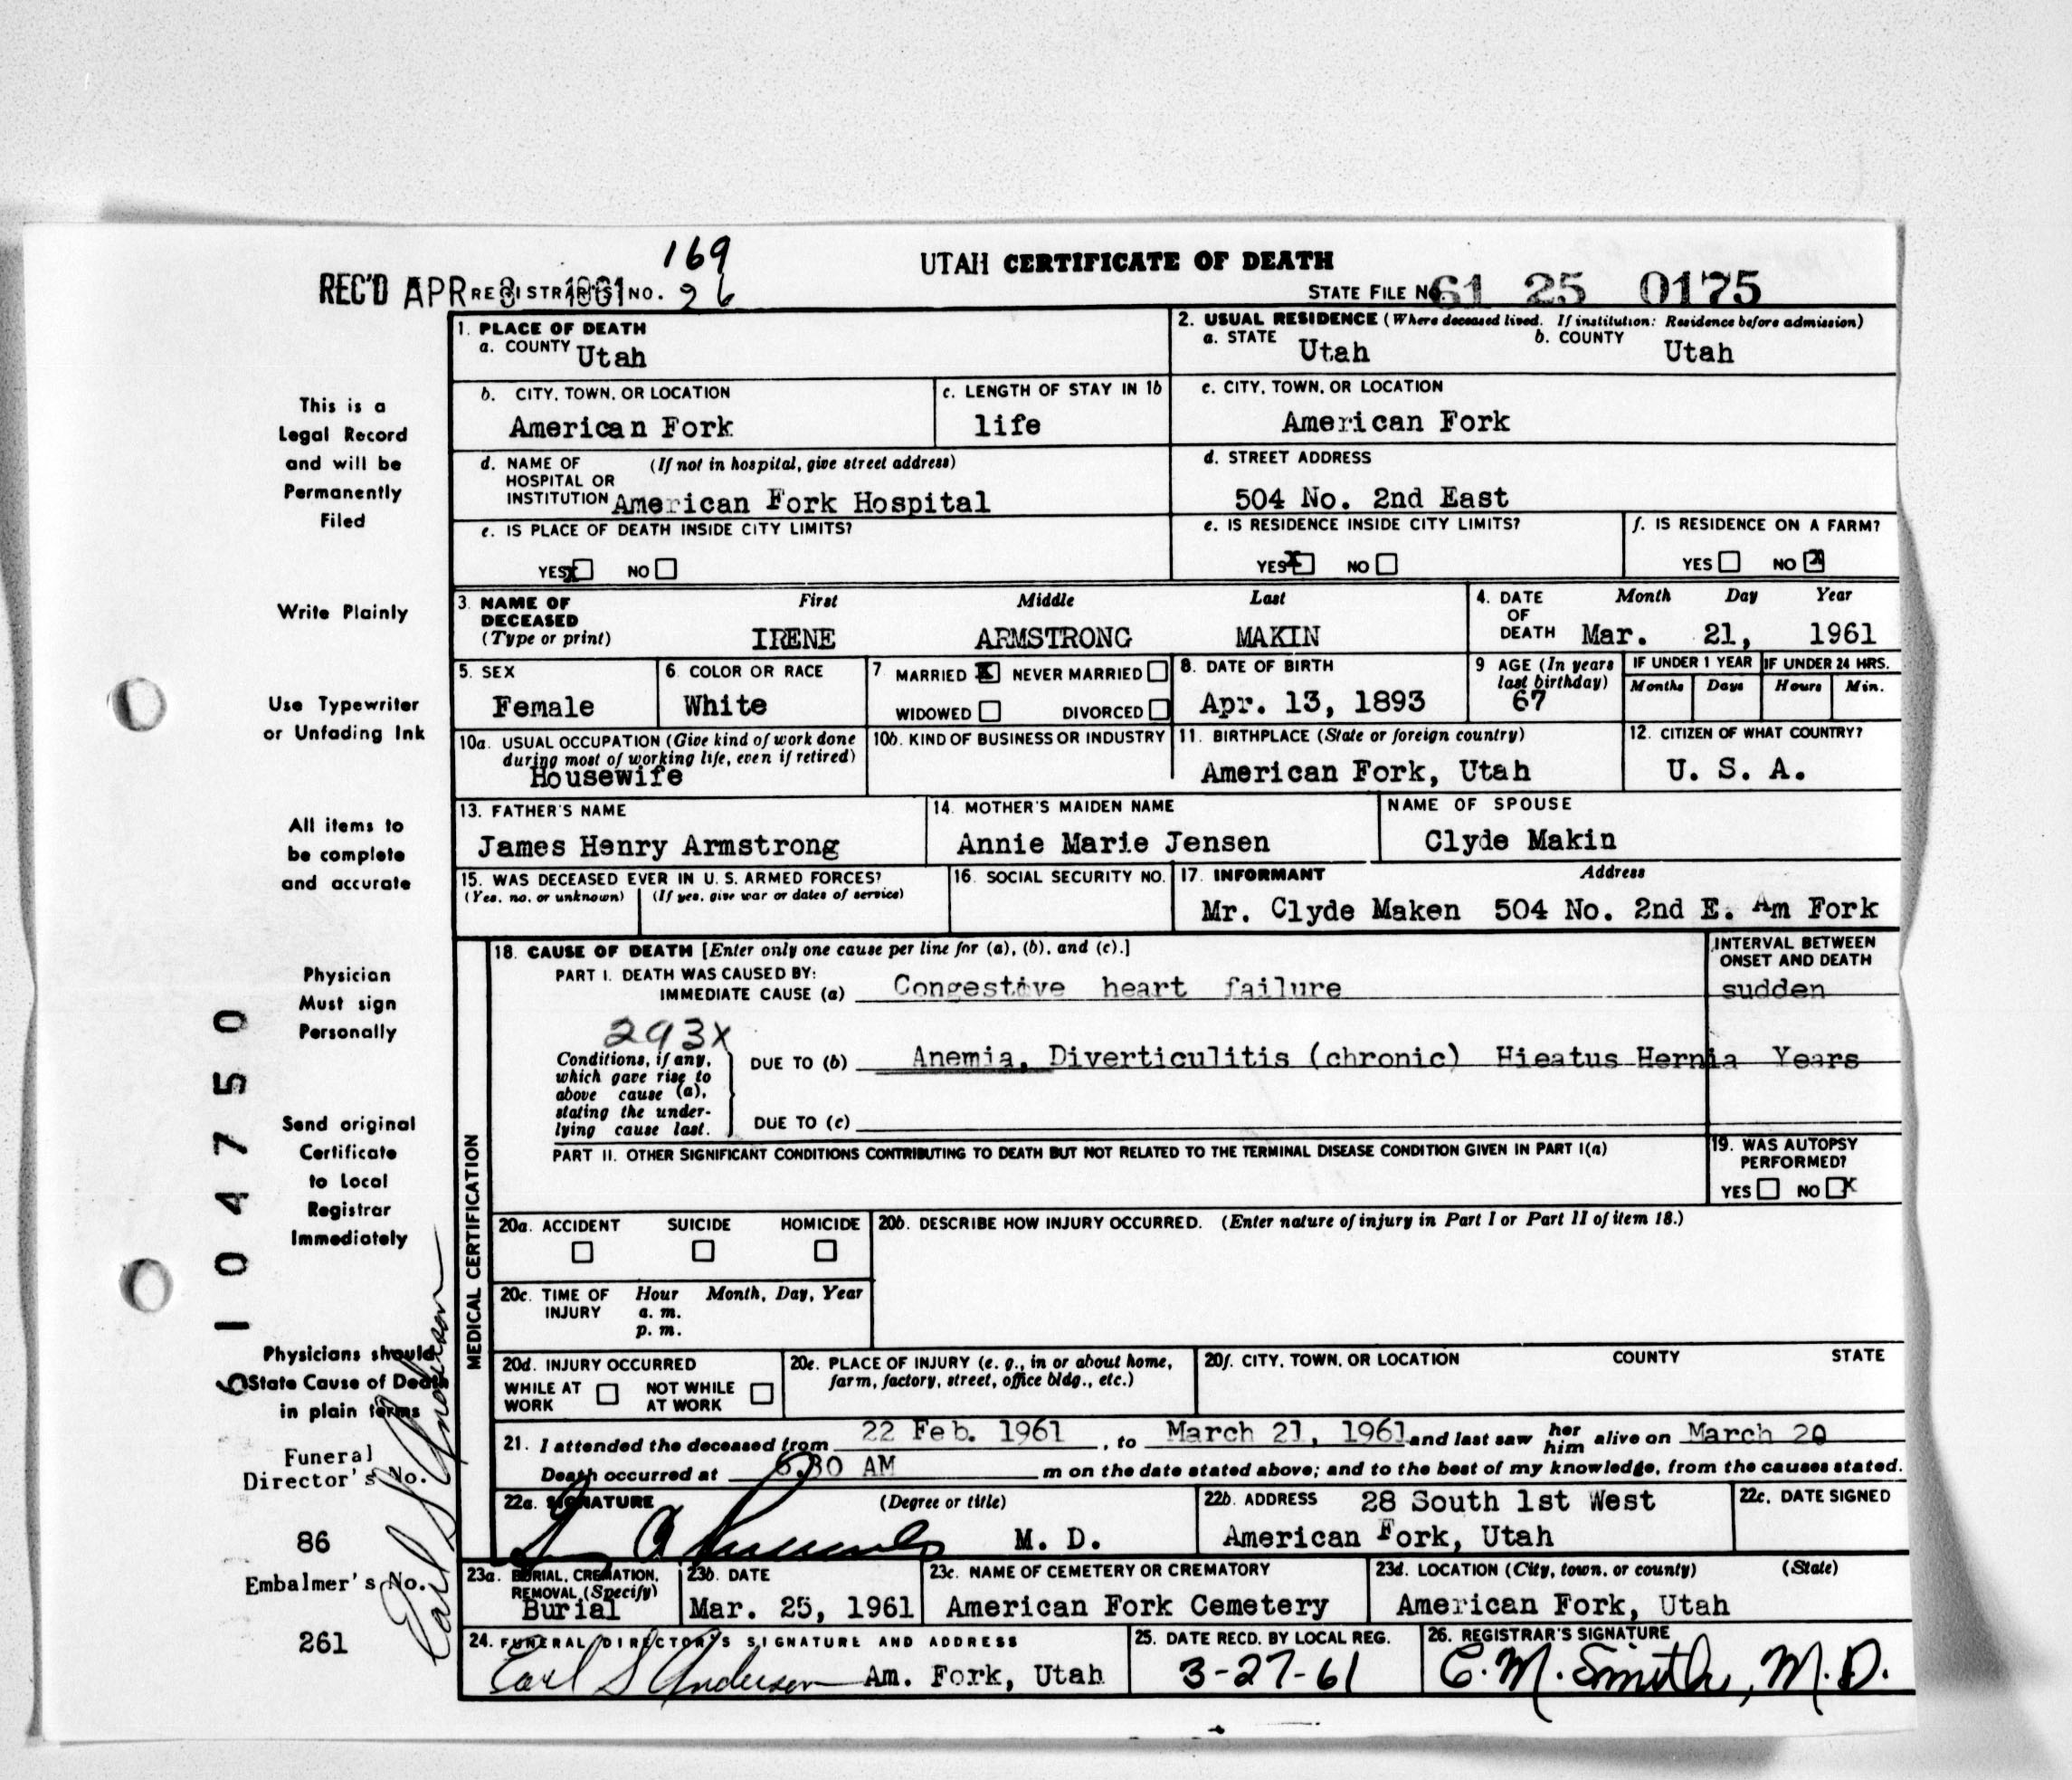 169
UTAH CERTIFICATE OF DEATH
REC'D APR 3 1961 REGISTRAR'S NO. 26
STATE FILE NO. 61 25 0175
1. PLACE OF DEATH
a. COUNTY Utah
2. USUAL RESIDENCE (Where deceased lived. If institution: Residence before admission)
a. STATE Utah b. COUNTY Utah
b. CITY, TOWN, OR LOCATION
American Fork
c. LENGTH OF STAY IN 1b
life
c. CITY, TOWN, OR LOCATION
American Fork
d. NAME OF (If not in hospital, give street address)
HOSPITAL OR
INSTITUTION American Fork Hospital
d. STREET ADDRESS
504 No. 2nd East
e. IS PLACE OF DEATH INSIDE CITY LIMITS?
YES X NO
e. IS RESIDENCE INSIDE CITY LIMITS?
YES X NO
f. IS RESIDENCE ON A FARM?
YES NO X
3. NAME OF DECEASED (Type or print)
First Middle Last
IRENE ARMSTRONG MAKIN
4. DATE OF DEATH
Month Day Year
Mar. 21, 1961
5. SEX
Female
6. COLOR OR RACE
White
7 MARRIED X NEVER MARRIED
WIDOWED DIVORCED
8. DATE OF BIRTH
Apr. 13, 1893
9 AGE (In years last birthday)
67
IF UNDER 1 YEAR
Months Days
IF UNDER 24 HRS.
Hours Min.
10a. USUAL OCCUPATION (Give kind of work done
during most of working life, even if retired)
Housewife
10b. KIND OF BUSINESS OR INDUSTRY
11. BIRTHPLACE (State or foreign country)
American Fork, Utah
12. CITIZEN OF WHAT COUNTRY?
U. S. A.
13. FATHER'S NAME
James Henry Armstrong
14. MOTHER'S MAIDEN NAME
Annie Marie Jensen
NAME OF SPOUSE
Clyde Makin
15. WAS DECEASED EVER IN U. S. ARMED FORCES?
(Yes, no, or unknown) (If yes, give war or dates of service)
16. SOCIAL SECURITY NO.
17. INFORMANT Address
Mr. Clyde Maken 504 No. 2nd E. Am Fork
MEDICAL CERTIFICATION
18. CAUSE OF DEATH [Enter only one cause per line for (a), (b), and (c).]
INTERVAL BETWEEN
ONSET AND DEATH
PART I. DEATH WAS CAUSED BY:
IMMEDIATE CAUSE (a) Congestive heart failure sudden
293X
Conditions, if any,
which gave rise to
above cause (a),
stating the under-
lying cause last.
DUE TO (b) Anemia, Diverticulitis (chronic) Hieatus Hernia Years
DUE TO (c)
PART II. OTHER SIGNIFICANT CONDITIONS CONTRIBUTING TO DEATH BUT NOT RELATED TO THE TERMINAL DISEASE CONDITION GIVEN IN PART I(a)
19. WAS AUTOPSY
PERFORMED?
YES NO X
20a. ACCIDENT SUICIDE HOMICIDE
20b. DESCRIBE HOW INJURY OCCURRED. (Enter nature of injury in Part I or Part II of item 18.)
20c. TIME OF INJURY
Hour Month, Day, Year
a. m.
p. m.
20d. INJURY OCCURRED
WHILE AT WORK NOT WHILE AT WORK
20e. PLACE OF INJURY (e. g., in or about home,
farm, factory, street, office bldg., etc.)
20f. CITY, TOWN, OR LOCATION COUNTY STATE
21. I attended the deceased from 22 Feb. 1961, to March 21, 1961 and last saw her him alive on March 20
Death occurred at 6:30 AM m on the date stated above; and to the best of my knowledge, from the causes stated.
22a. SIGNATURE (Degree or title)
M. D.
22b. ADDRESS 28 South 1st West
American Fork, Utah
22c. DATE SIGNED
23a. BURIAL, CREMATION,
REMOVAL (Specify)
Burial
23b. DATE
Mar. 25, 1961
23c. NAME OF CEMETERY OR CREMATORY
American Fork Cemetery
23d. LOCATION (City, town, or county) (State)
American Fork, Utah
24. FUNERAL DIRECTOR'S SIGNATURE AND ADDRESS
Earl S Anderson Am. Fork, Utah
25. DATE RECD. BY LOCAL REG.
3-27-61
26. REGISTRAR'S SIGNATURE
C. M. Smith, M. D.
This is a
Legal Record
and will be
Permanently
Filed
Write Plainly
Use Typewriter
or Unfading Ink
All items to
be complete
and accurate
Physician
Must sign
Personally
Send original
Certificate
to Local
Registrar
Immediately
Physicians should
State Cause of Death
in plain terms
Funeral
Director's No.
86
Embalmer's No.
261
Earl S. Anderson
6104750